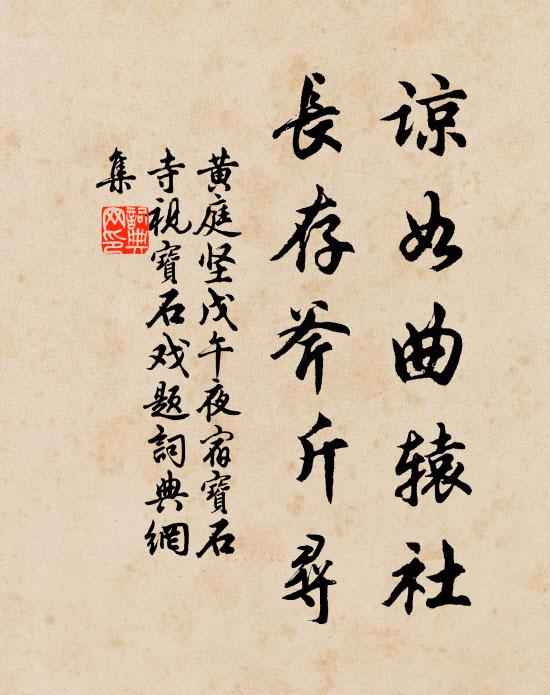 谅如曲辕社
長存斧斤尋
黄庭坚戊午夜宿寶石
寺视寶石戏题詞典網
集
詞典
网印